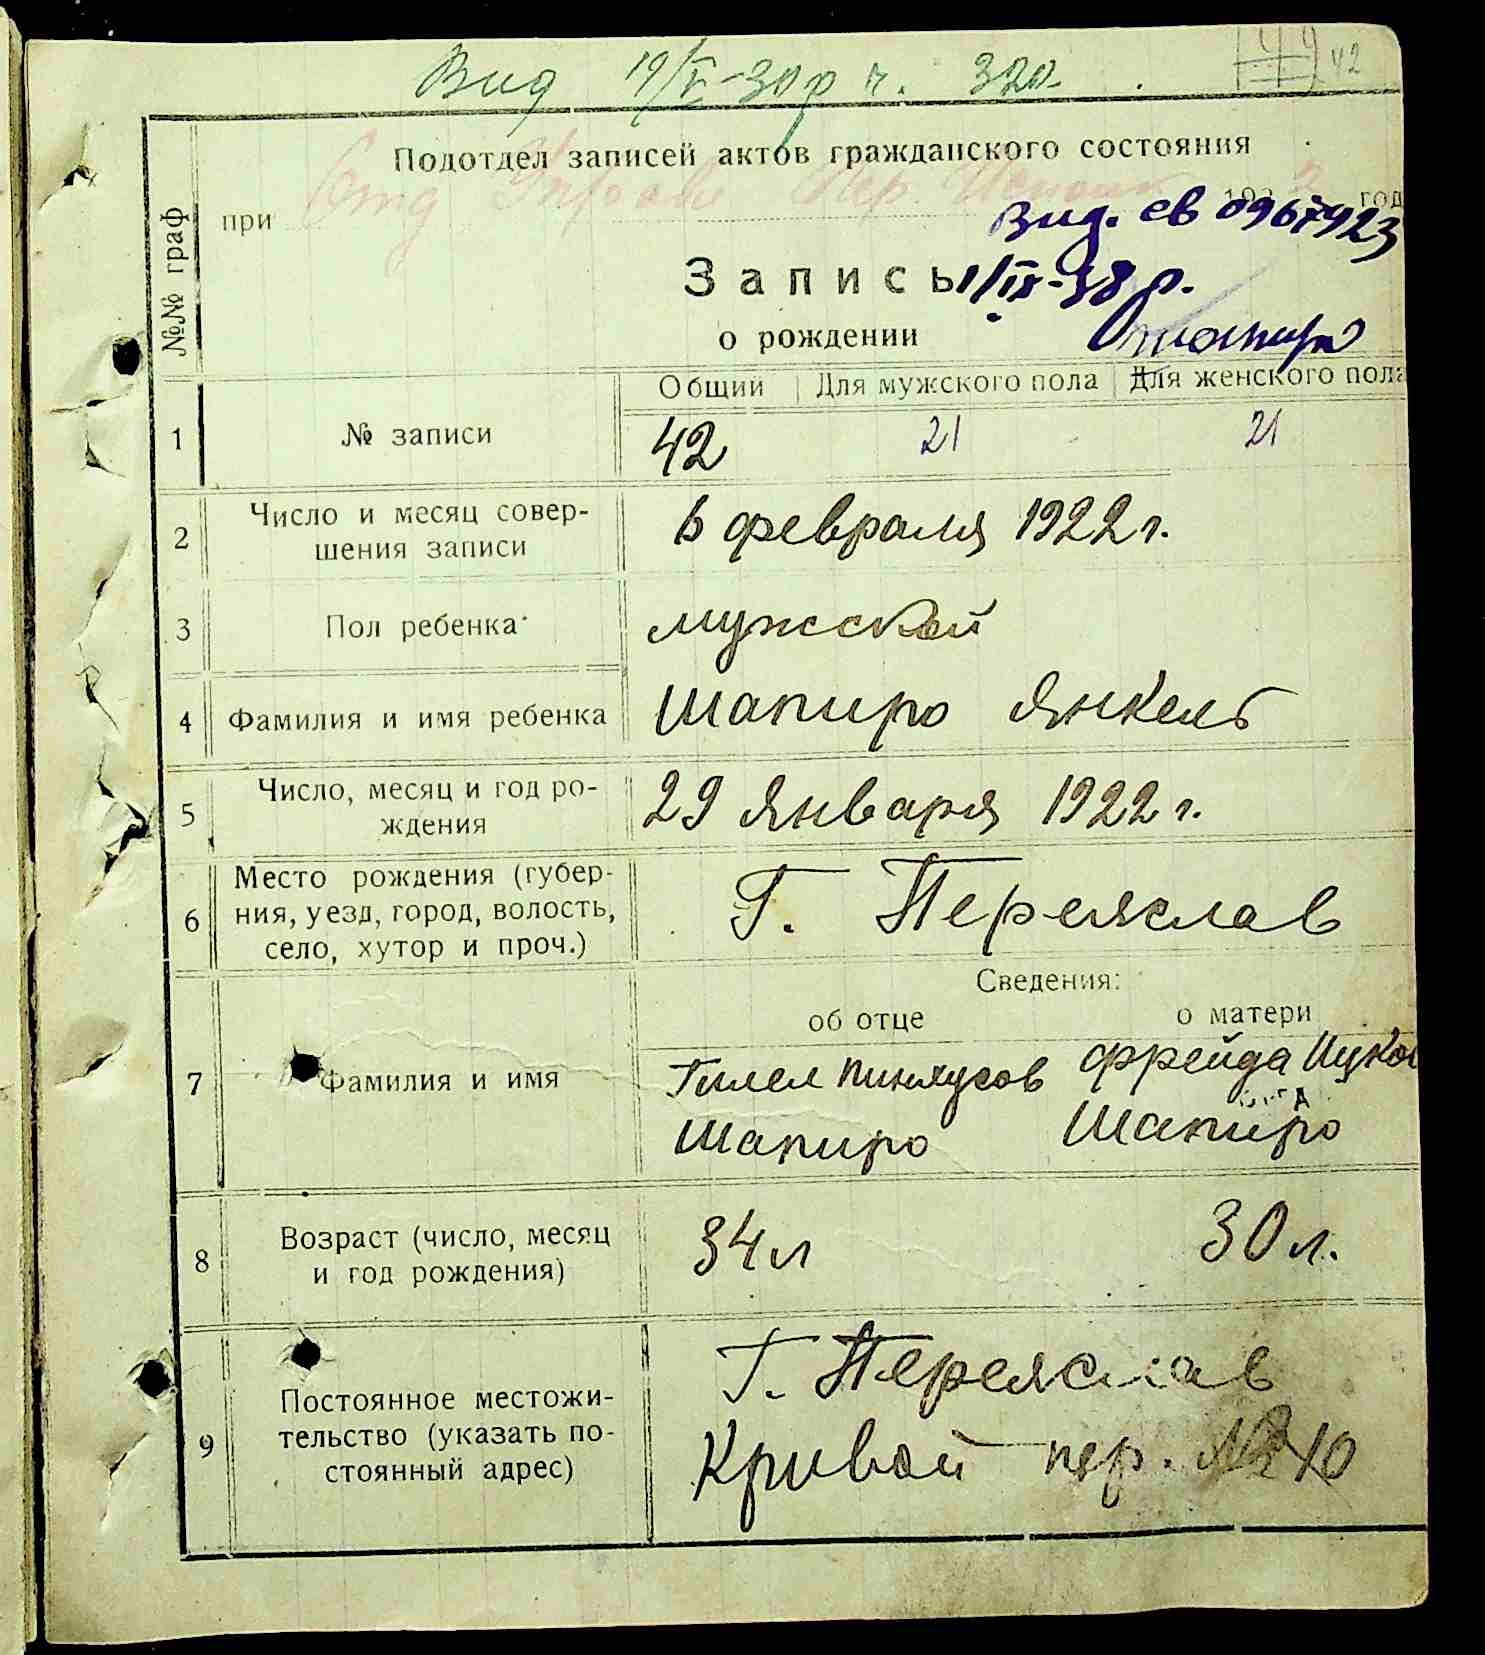 Вид 19/V-30р ч. 320.
42
Подотдел записей актов гражданского состояния
при Отд Управ Пер. 192 год
Вид. ЄВ 0967423
Запись 1/IX-38р.
о рождении
№№ граф
Общий | Для мужского пола | Для женского пола
1 № записи 42 21 21
2 Число и месяц совер- 6 февраля 1922 г.
шения записи
3 Пол ребенка мужской
4 Фамилия и имя ребенка Шапиро Янкель
5 Число, месяц и год ро- 29 Января 1922 г.
ждения
6 Место рождения (губер- Г. Переяслав
ния, уезд, город, волость,
село, хутор и проч.)
Сведения:
об отце о матери
7 Фамилия и имя Гилел Пинхусов Фрейда Ицков
Шапиро Шапиро
8 Возраст (число, месяц 34 л 30 л.
и год рождения)
9 Постоянное местожи- Г. Переяслав
тельство (указать по- Кривой пер. № 10
стоянный адрес)